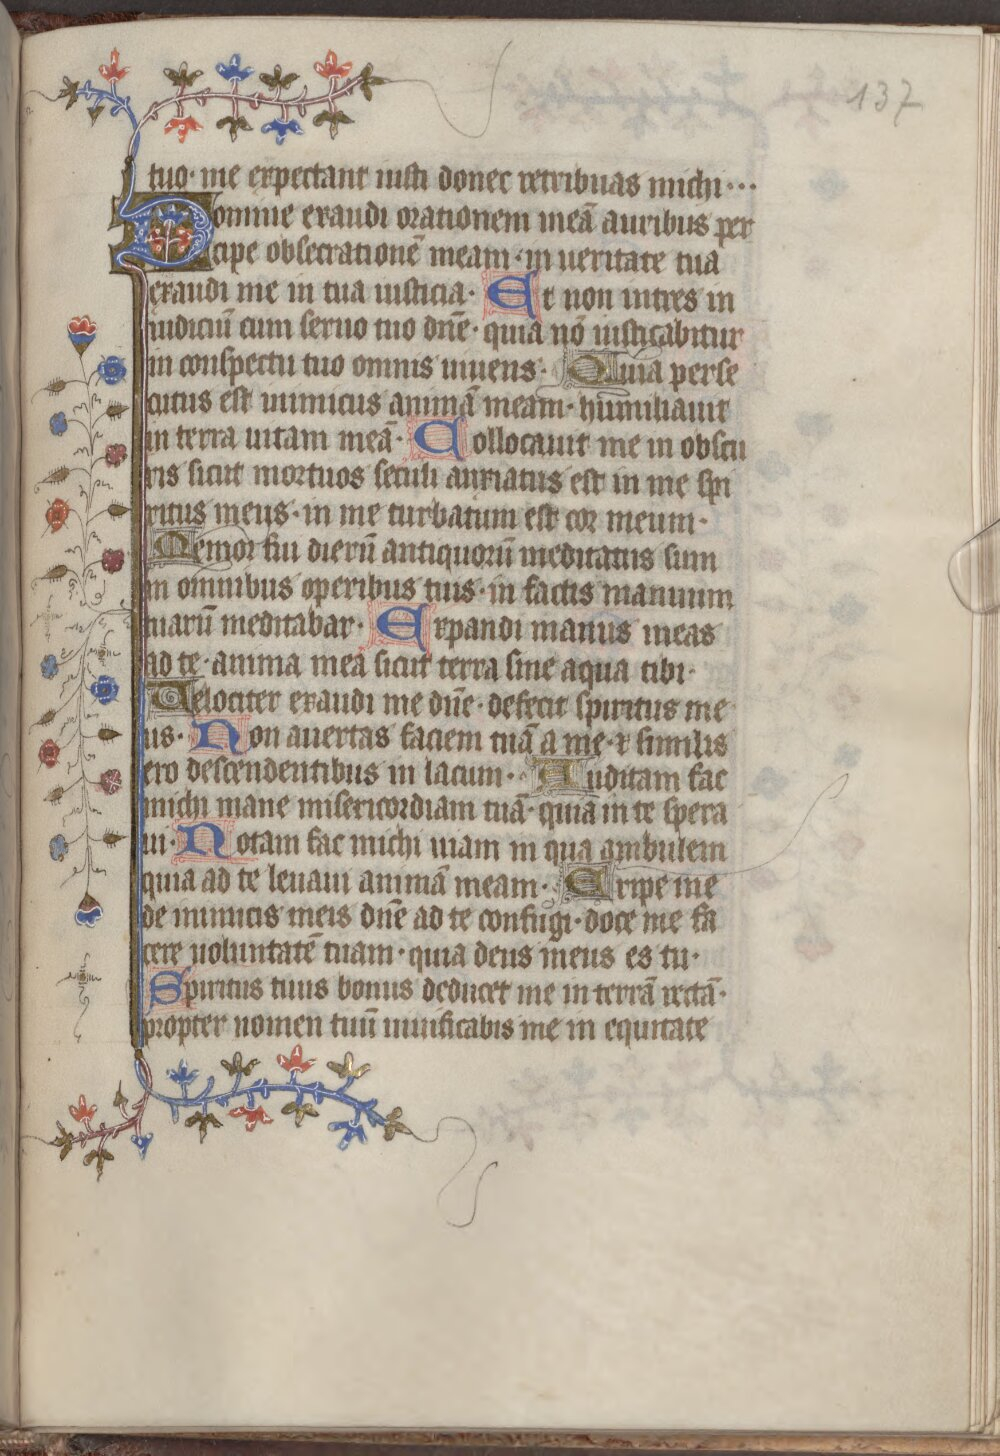 137
tuo · me expectant iusti donec retribuas michi · · ·
Domine exaudi orationem meā auribus per
cipe obsecrationē meam · in ueritate tua
exaudi me in tua iusticia · Et non intres in
iudiciū cum seruo tuo dn̄e · quia nō iustificabitur
in conspectu tuo omnis uiuens · Quia perse
cutus est inimicus animā meam · humiliauit
in terra uitam meā · Collocauit me in obscu
ris sicut mortuos seculi anxiatus est in me spi
ritus meus · in me turbatum est cor meum ·
Memor fui dierū antiquorū meditatus sum
in omnibus operibus tuis · in factis manuum
tuarū meditabar · Expandi manus meas
ad te · anima mea sicut terra sine aqua tibi ·
Uelociter exaudi me dn̄e · defecit spiritus me
us · Non auertas faciem tuā a me · ⁊ similis
ero descendentibus in lacum · Auditam fac
michi mane misericordiam tuā · quia in te spera
ui · Notam fac michi uiam in qua ambulem
quia ad te leuaui animā meam · Eripe me
de inimicis meis dn̄e ad te confugi · doce me fa
cere uoluntatē tuam · quia deus meus es tu ·
Spiritus tuus bonus deducet me in terrā rectā ·
propter nomen tuū uiuificabis me in equitate